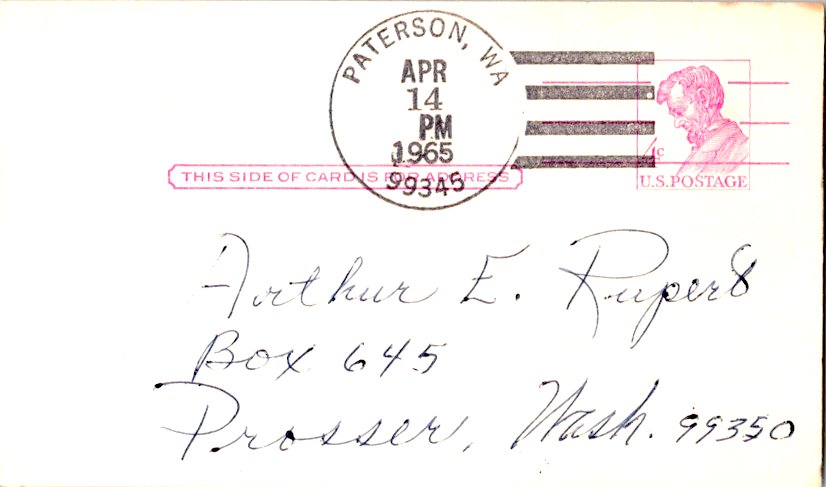 PATERSON, WA
APR
14
PM
1965
99345
4c
U.S. POSTAGE
THIS SIDE OF CARD IS FOR ADDRESS
Arthur E. Rupert
Box 645
Prosser, Wash. 99350